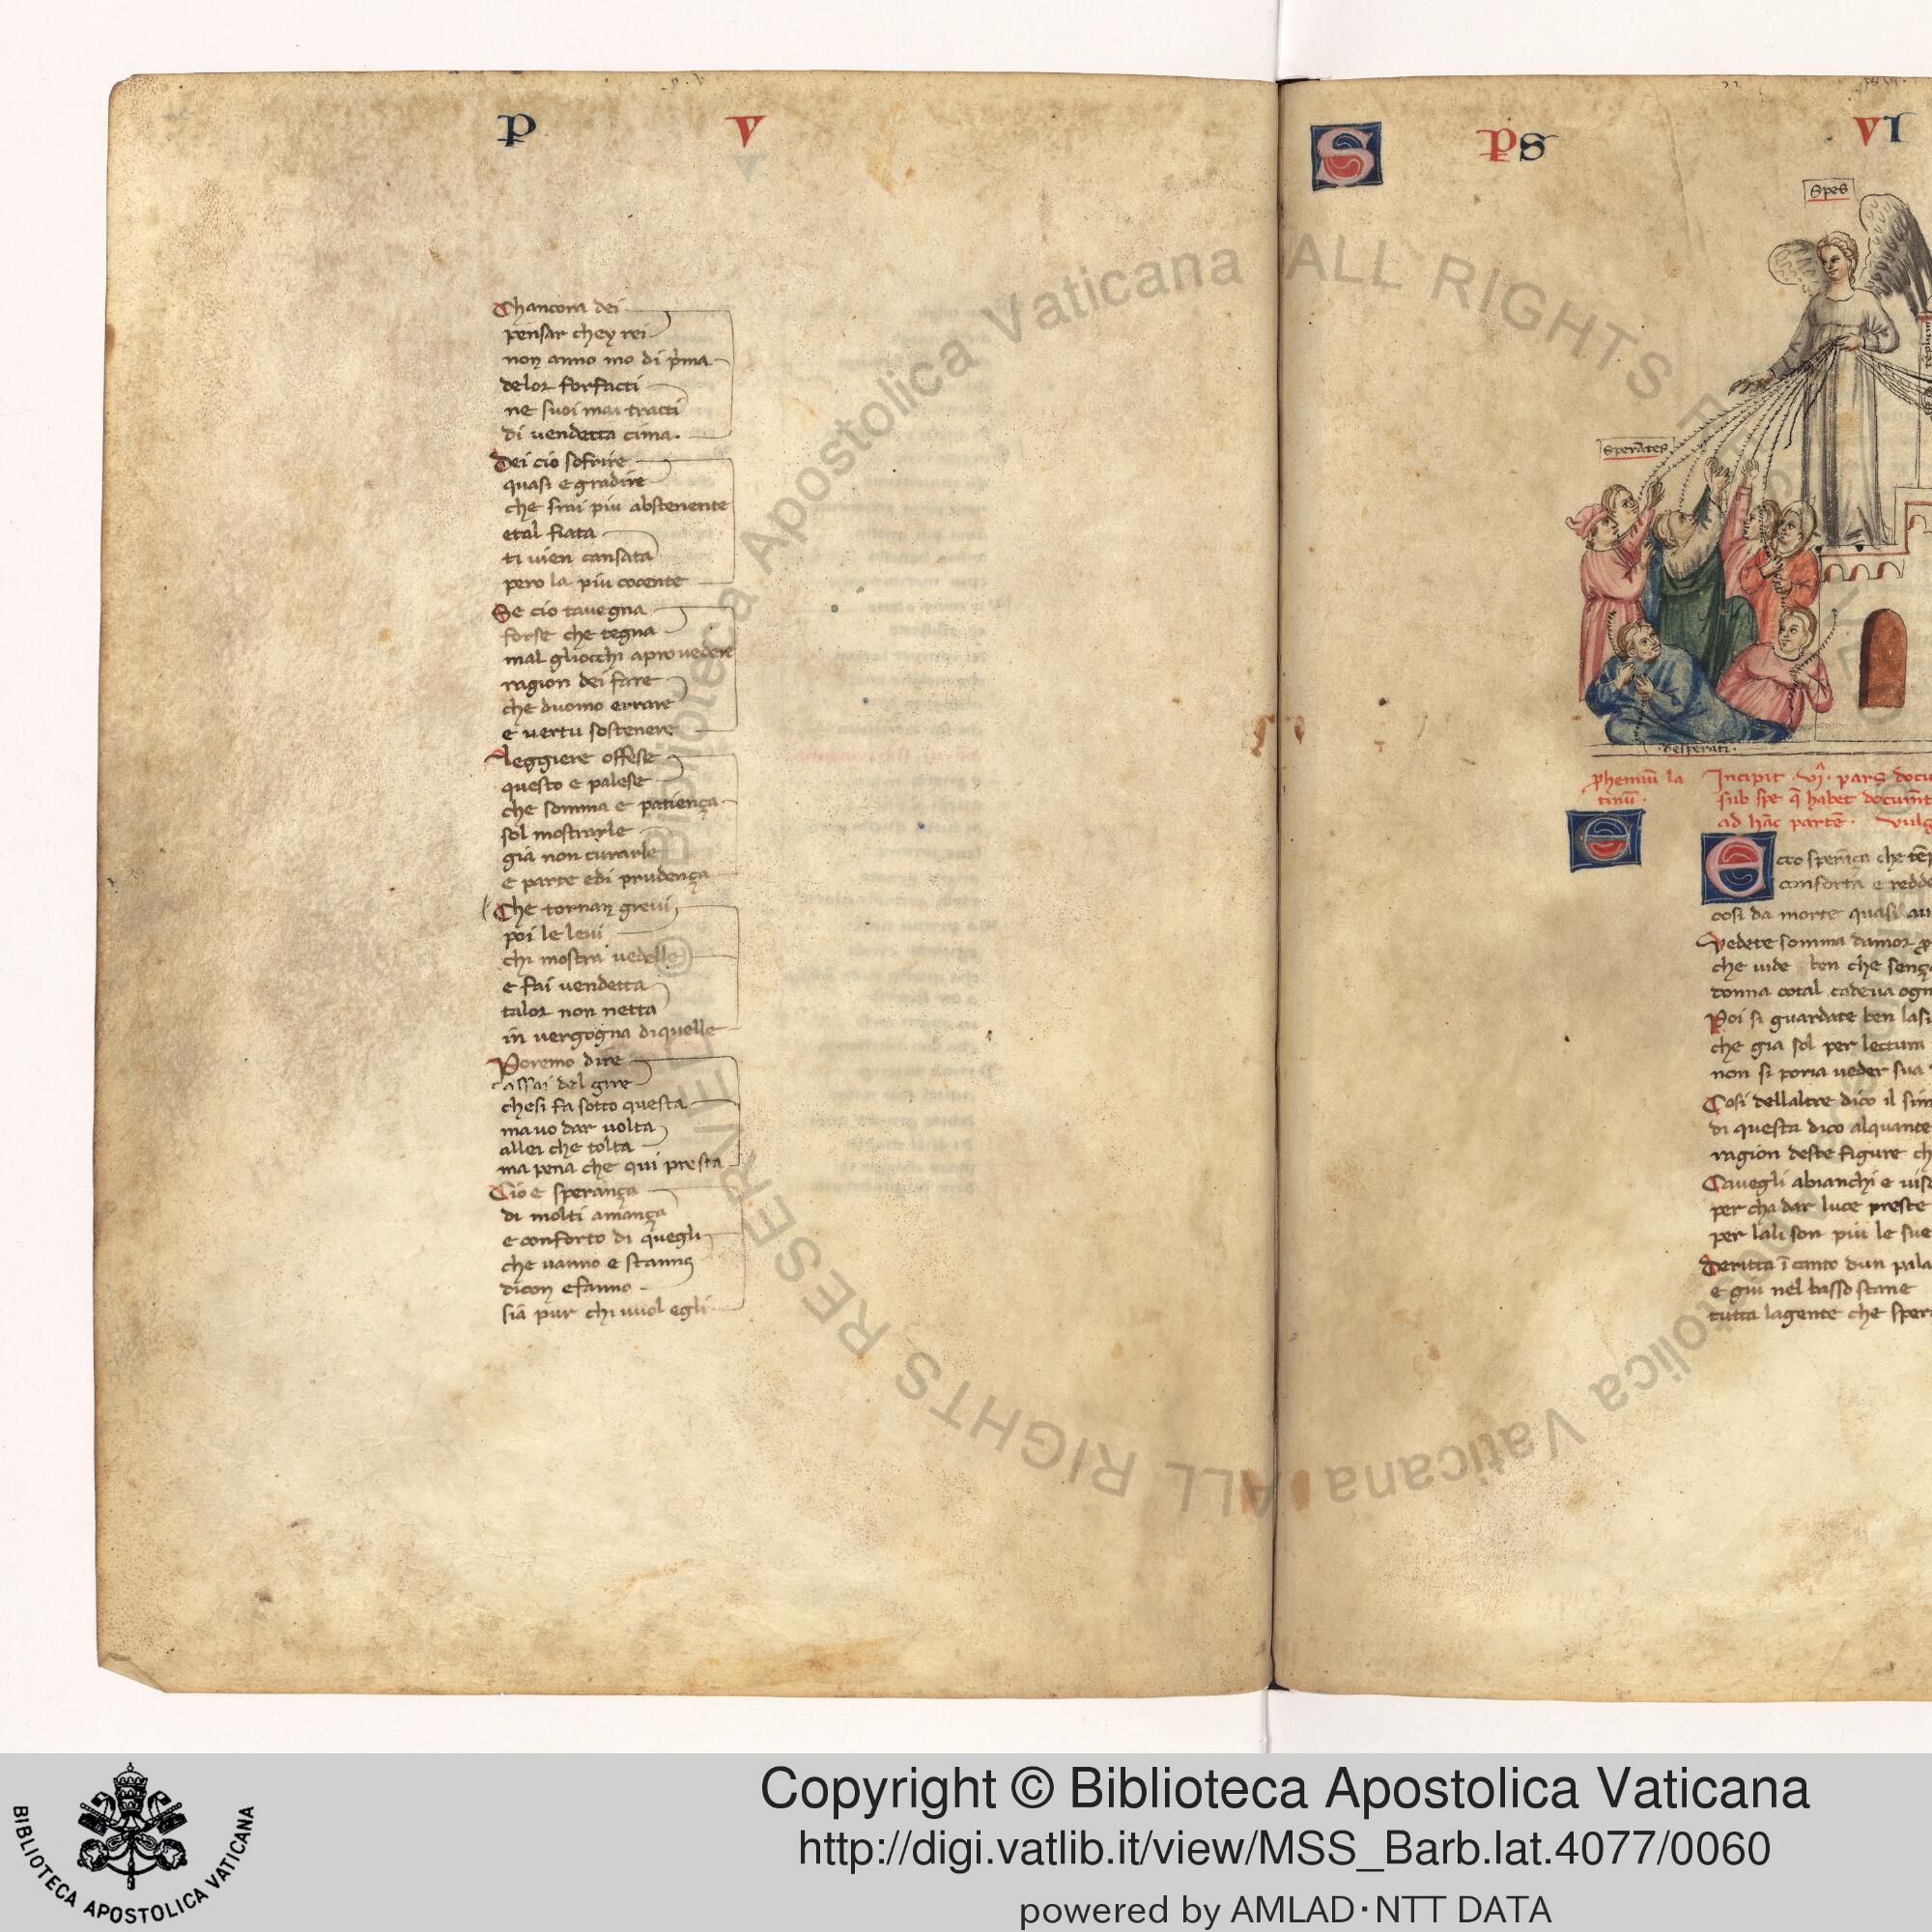 P V
Chancora dei
pensar chey rei
non anno mo di p̄ma
delor forfacti
ne suoi mai tracti
di vendetta cima.
Dei cio sofrire
quasi e gradire
che srai piu abstenente
etal fiata
ti uien cansata
pero la piu cocente
Se cio tauegna
forse che tegna
mal gliocchi aprovedere
ragion dei fare
che duomo errare
e uertu sostenere
Aleggiere offese
questo e palese
che somma e patiença
sol mostrarle
gia non curarle
e parte edi prudença
Che tornan grevi
poi le leui
chi mostra vedelle
e fai vendetta
talor non netta
in vergogna diquelle
Poremo dire
assai del gire
chesi fa sotto questa
mauo dar uolta
allei che tolta
ma pena che qui presta
Cio e sperança
di molti amança
e conforto di quegli
che uanno e stanno
dicon efanno
sia pur chi uuol egli
S PS VI
Spes
Sperātes
desperati
phemiū la
tinū.
Incipit .vj. pars docu
sub spe q̄ habet documt
ad hāc partē. vulg
E
E cco sperāça che tē
conforta e redde
cosi da morte quasi au
Vedete somma damor
che uide ben che senç
donna cotal cadeua ogn
Poi si guardate ben lasi
che gia sol per lectura
non si poria ueder sua
Cosi dellaltre dico il sim
di questa dico alquante
ragion deste figure ch
Cauegli abianchi e uis
per cha dar luce preste
per lali son piu le sue
Deritta ī canto dun pala
e giu nel basso stane
tutta lagente che sper
© Biblioteca Apostolica Vaticana ALL RIGHTS RESERVED
BIBLIOTECA APOSTOLICA VATICANA
Copyright © Biblioteca Apostolica Vaticana
http://digi.vatlib.it/view/MSS_Barb.lat.4077/0060
powered by AMLAD·NTT DATA